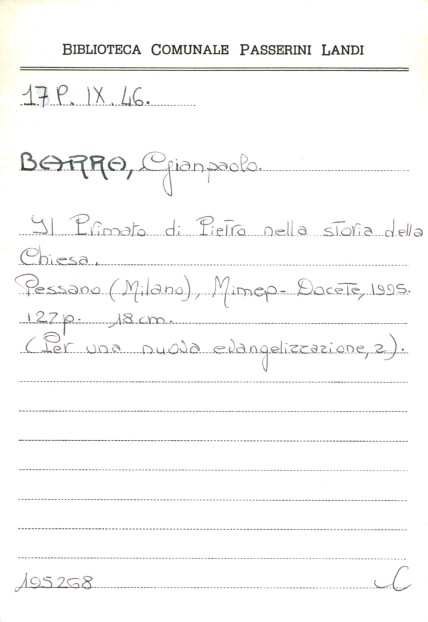 BIBLIOTECA COMUNALE PASSERINI LANDI
17 P. IX. 46.
BARRA, Gianpaolo.
Il Primato di Pietro nella storia della
Chiesa.
Pessano (Milano), Mimep-Docete, 1995.
127 p. 18 cm.
(Per una nuova evangelizzazione, 2).
195268 C